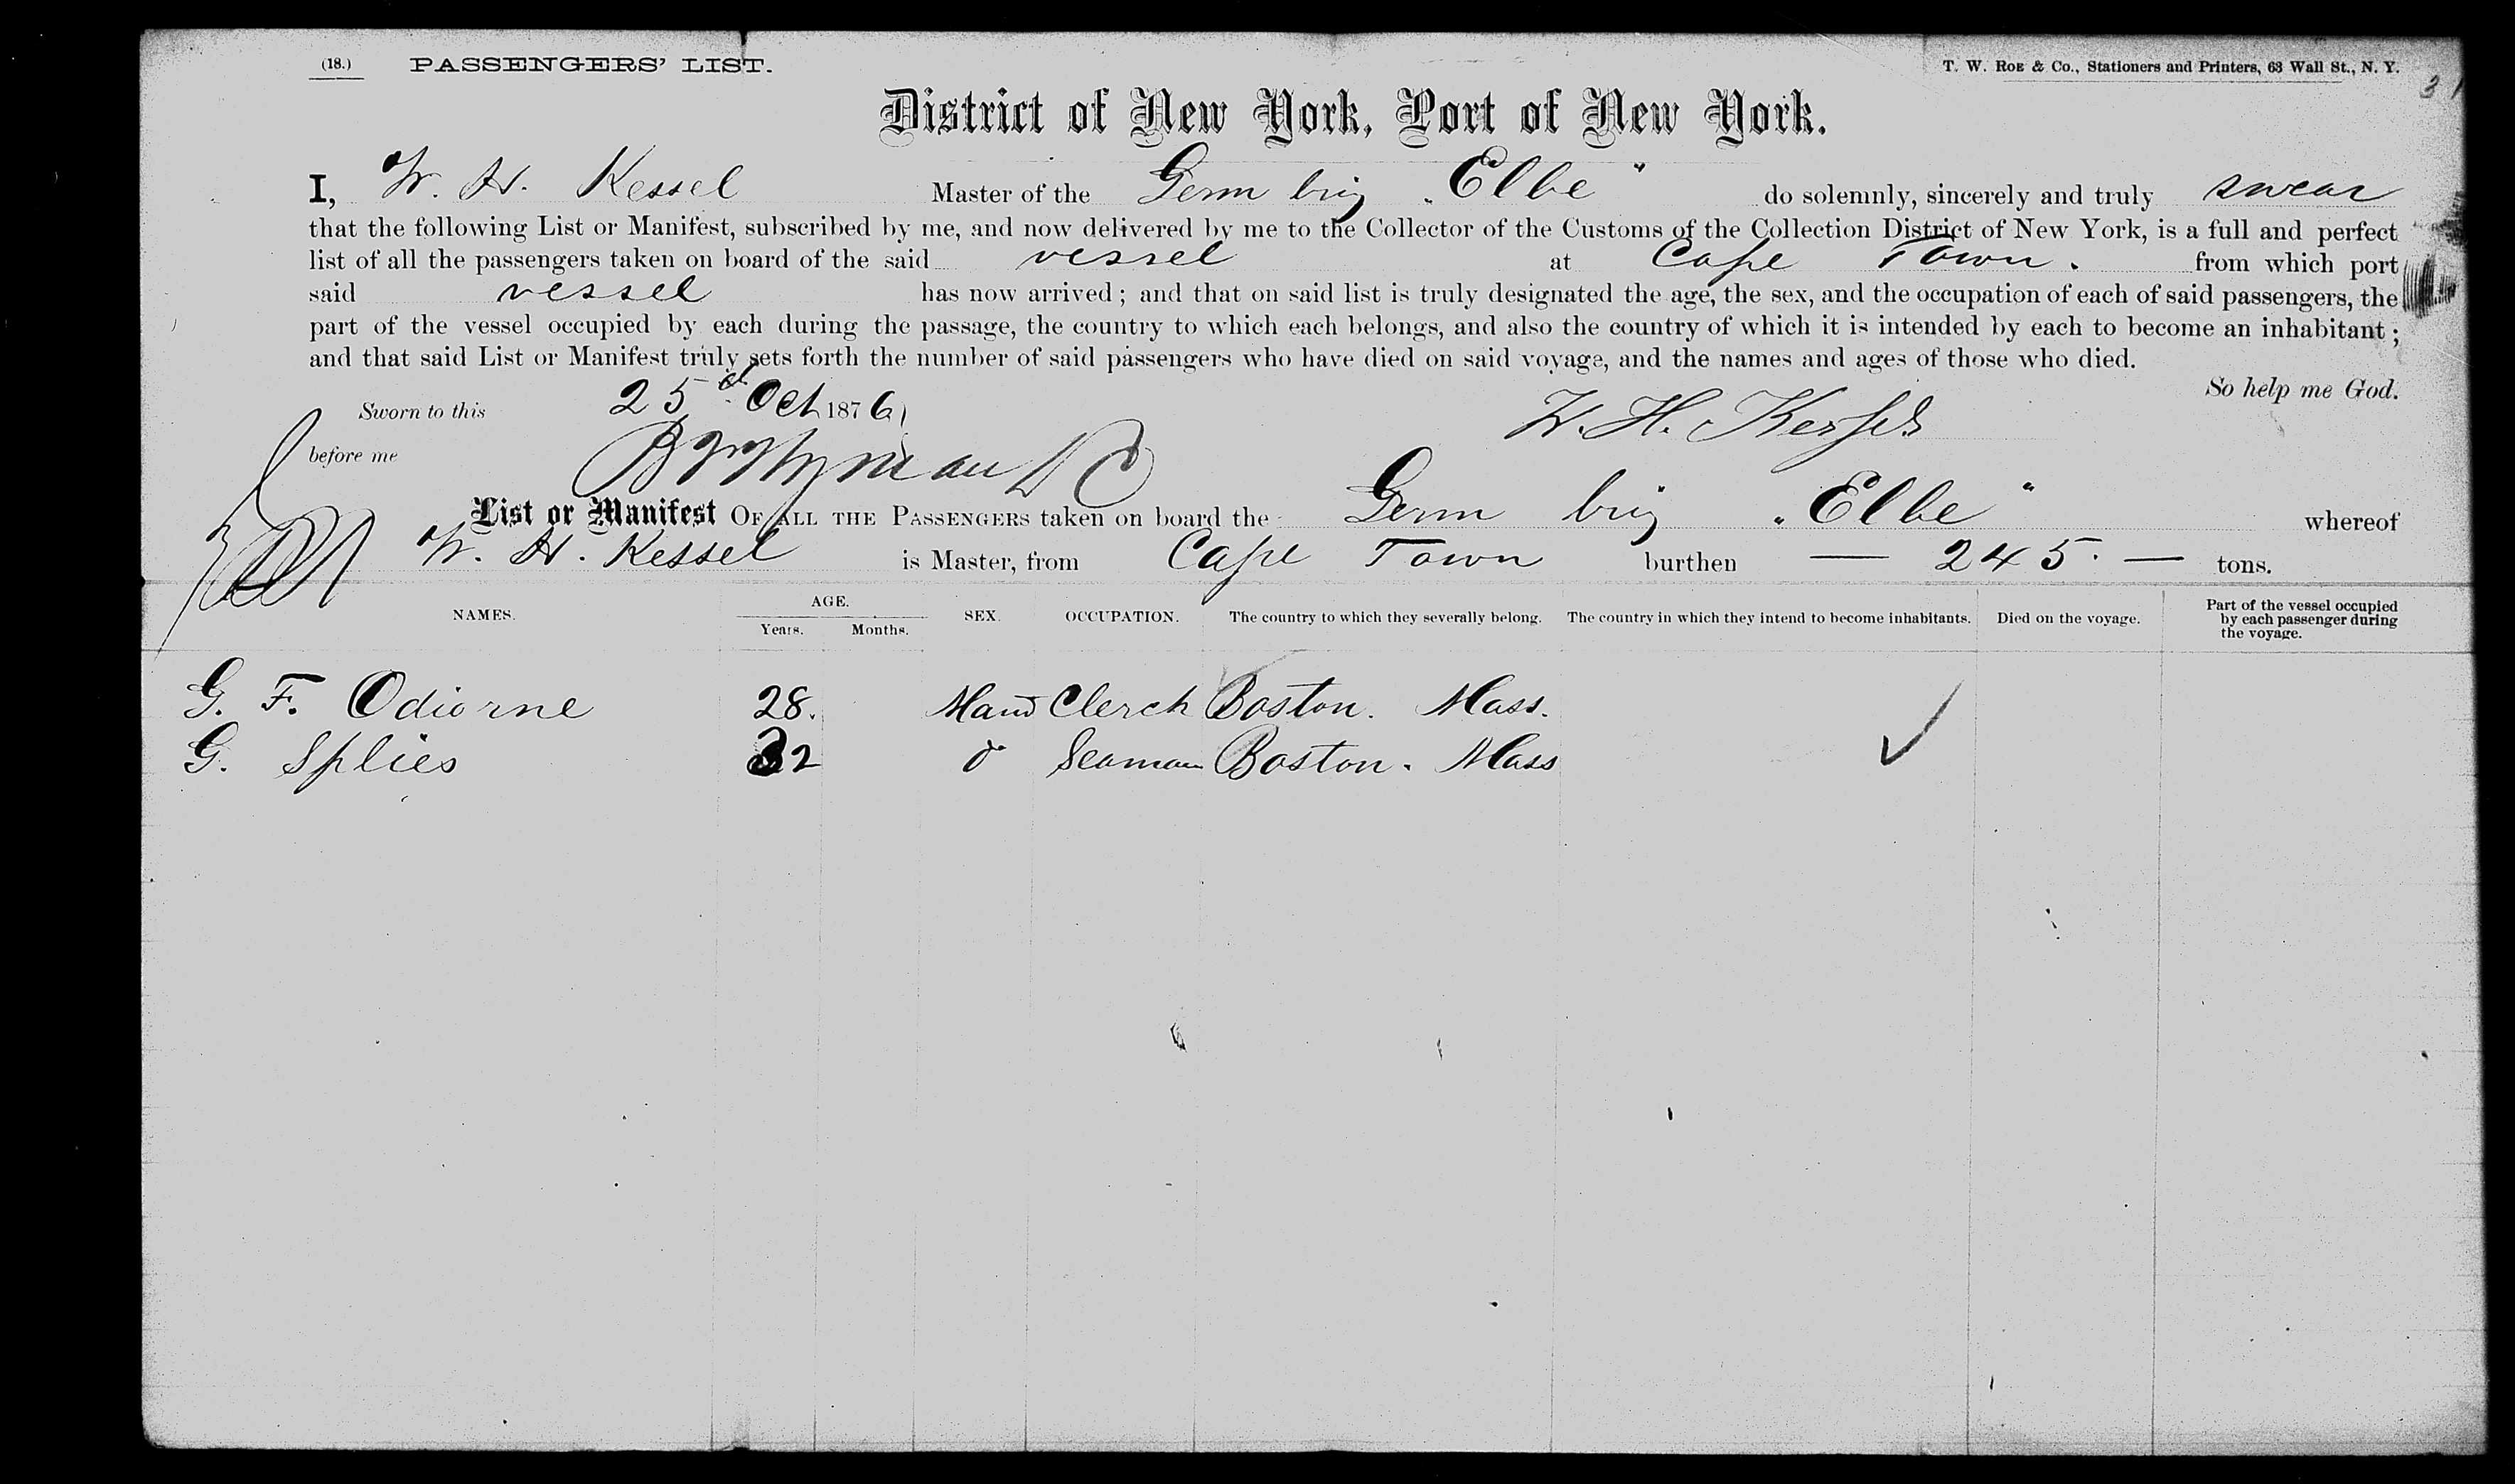 (18.) PASSENGERS' LIST. T. W. Roe & Co., Stationers and Printers, 63 Wall St., N. Y.
District of New York, Port of New York.
I, W. H. Kessel Master of the Germ brig "Elbe" do solemnly, sincerely and truly swear
that the following List or Manifest, subscribed by me, and now delivered by me to the Collector of the Customs of the Collection District of New York, is a full and perfect
list of all the passengers taken on board of the said vessel at Cape Town. from which port
said vessel has now arrived; and that on said list is truly designated the age, the sex, and the occupation of each of said passengers, the
part of the vessel occupied by each during the passage, the country to which each belongs, and also the country of which it is intended by each to become an inhabitant;
and that said List or Manifest truly sets forth the number of said passengers who have died on said voyage, and the names and ages of those who died.
So help me God.
Sworn to this 25 Oct 1876
W. H. Kessel
before me
List or Manifest OF ALL THE PASSENGERS taken on board the Germ brig "Elbe" whereof
W. H. Kessel is Master, from Cape Town burthen — 245. — tons.
NAMES. AGE. Years. Months. SEX. OCCUPATION. The country to which they severally belong. The country in which they intend to become inhabitants. Died on the voyage. Part of the vessel occupied by each passenger during the voyage.
G. F. Odiorne 28. Clerck Boston. Mass.
G. Splies 32 Seaman Boston. Mass